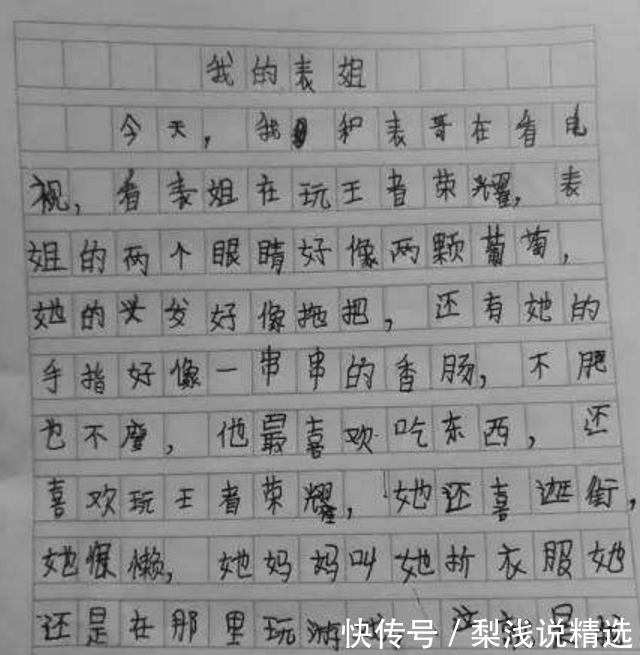 我的表姐
今天，我和表哥在看电
视，看表姐在玩王者荣耀，表
姐的两个眼睛好像两颗葡萄，
她的头发好像拖把，还有她的
手指好像一串串的香肠，不肥
也不瘦，他最喜欢吃东西，还
喜欢玩王者荣耀，她还喜逛街，
她很懒，她妈妈叫她折衣服她
还是在那里玩游
快传号/梨浅说精选